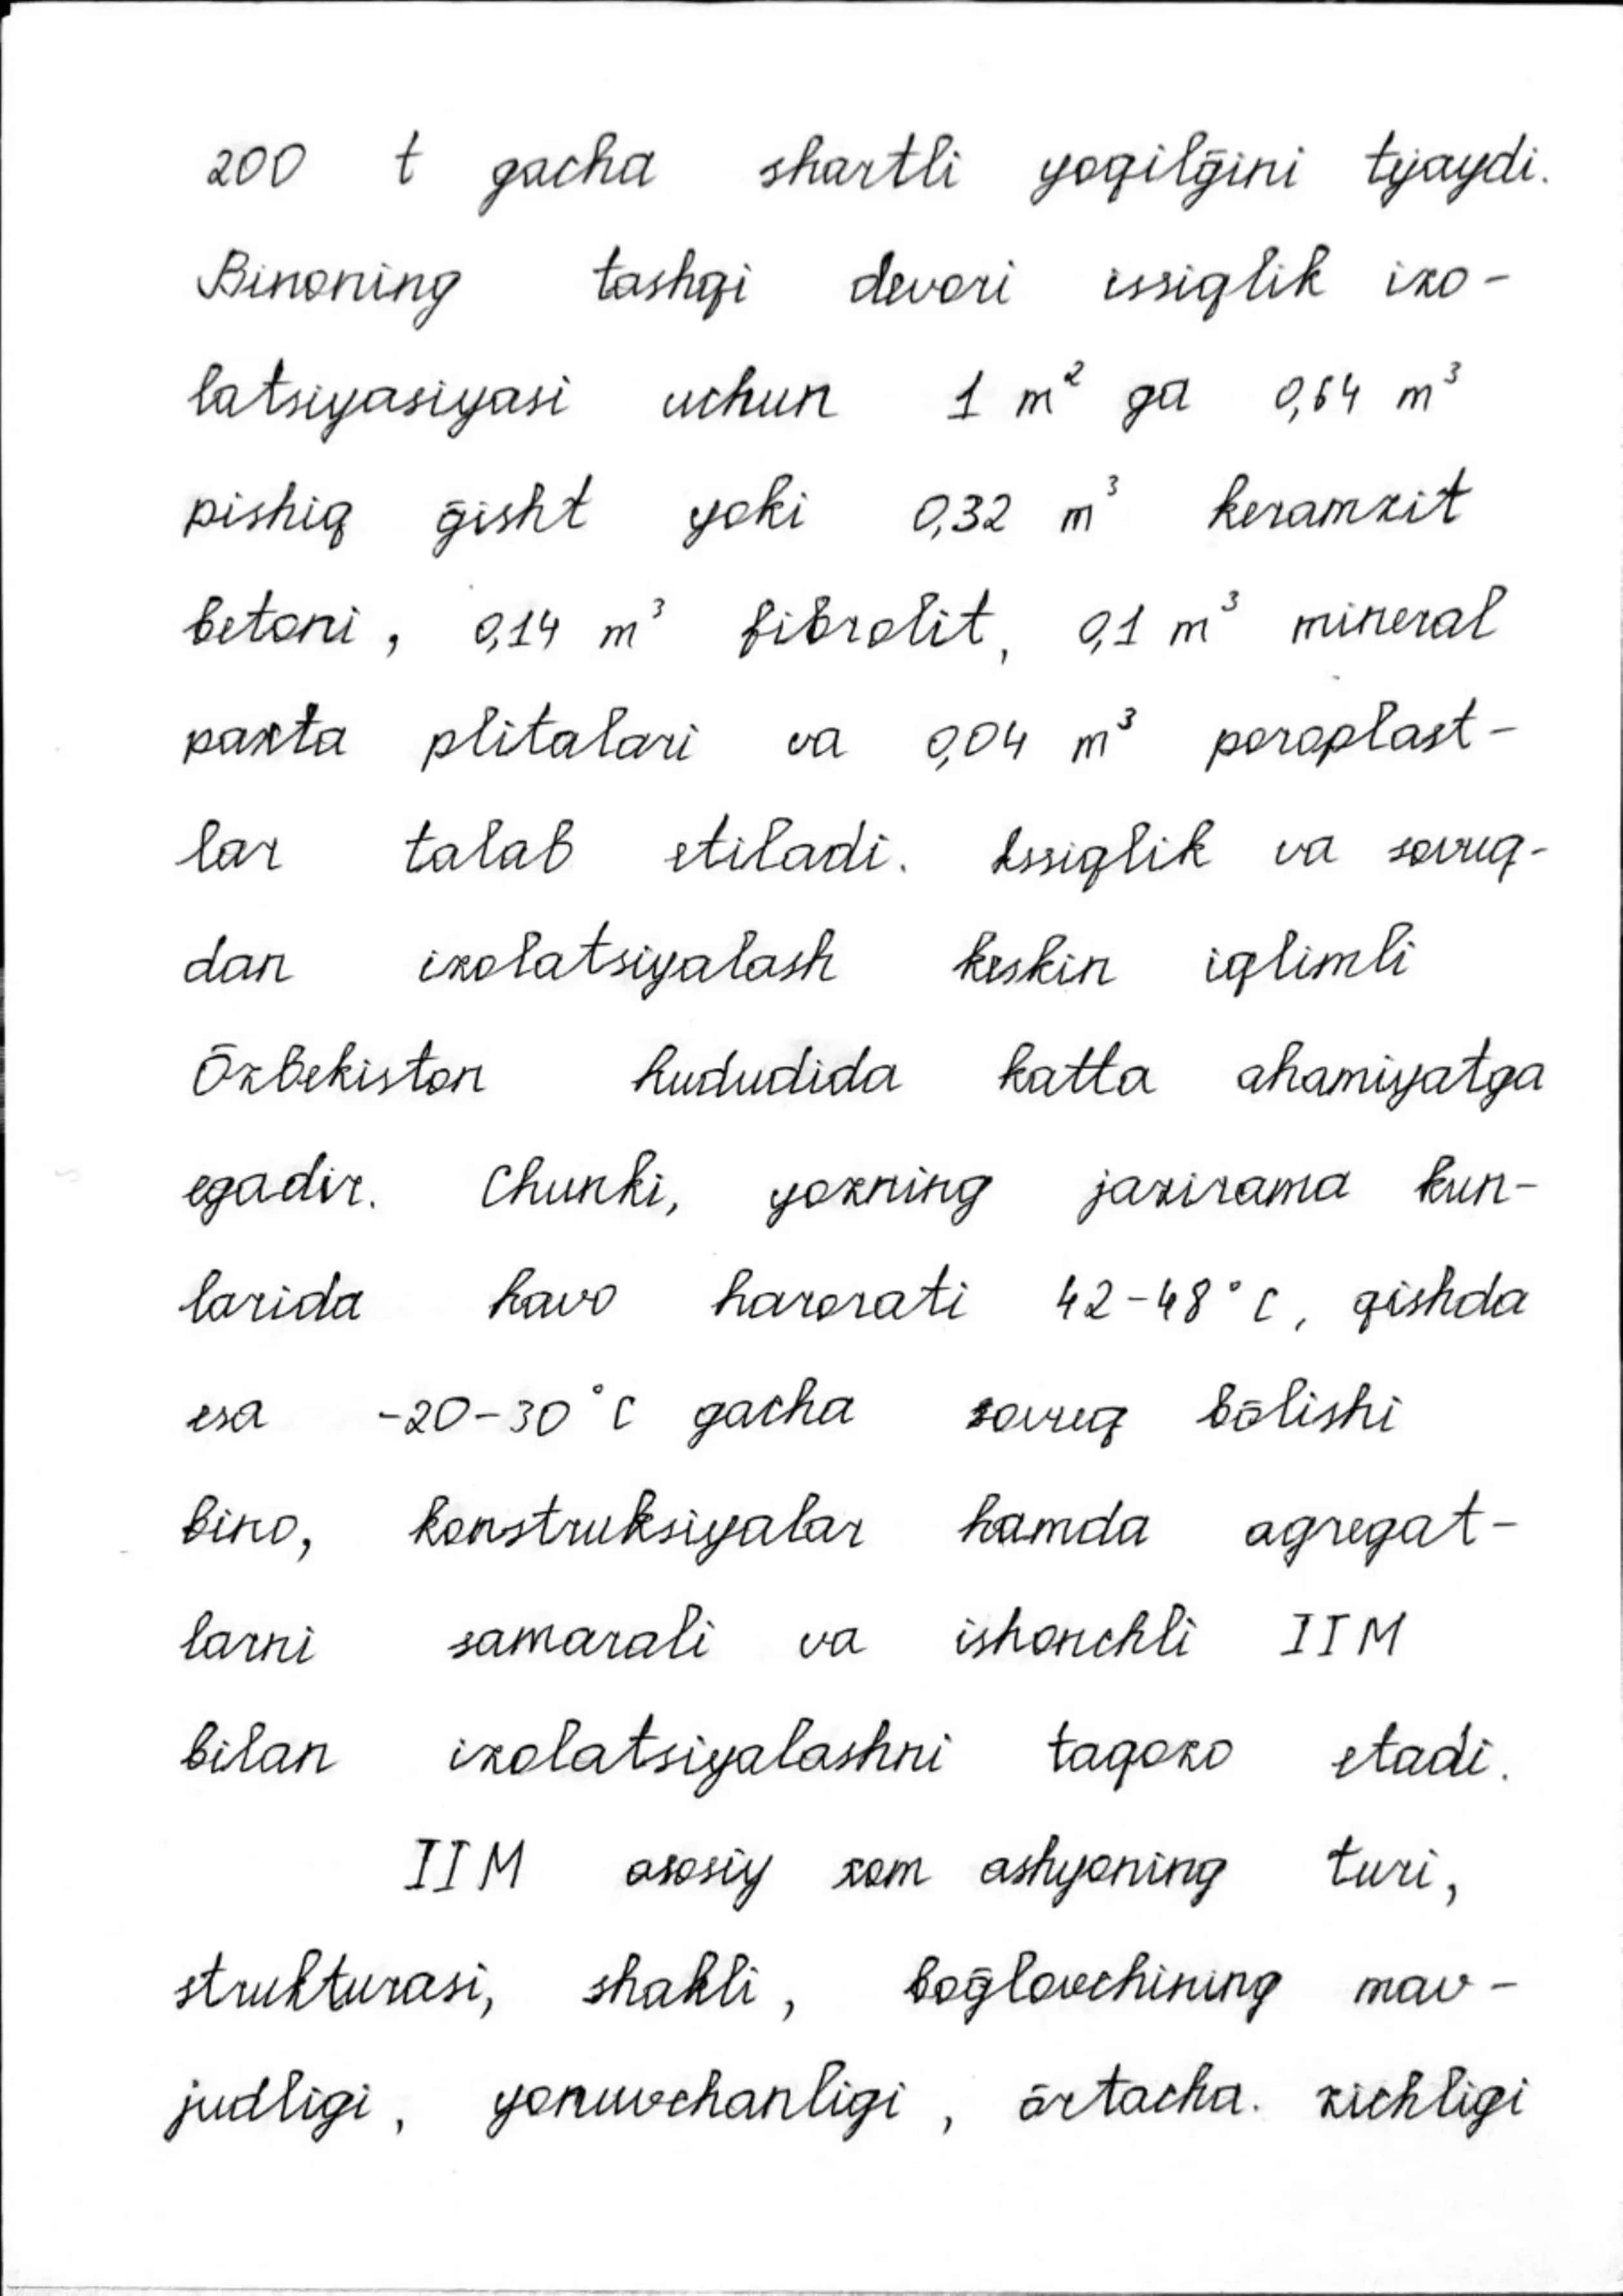 200 t gacha shartli yoqilḡini tejaydi.
Binoning tashqi devori issiqlik izo-
latsiyasiyasi uchun 1 m² ga 0,64 m³
pishiq ḡisht yoki 0,32 m³ keramzit
betoni, 0,14 m³ fibrolit, 0,1 m³ mineral
paxta plitalari va 0,04 m³ poroplast-
lar talab etiladi. Issiqlik va sovuq-
dan izolatsiyalash keskin iqlimli
Ōzbekiston hududida katta ahamiyatga
egadir. Chunki, yozning jazirama kun-
larida havo harorati 42-48°C, qishda
esa -20-30°C gacha sovuq bōlishi
bino, konstruksiyalar hamda agregat-
larni samarali va ishonchli IIM
bilan izolatsiyalashni taqozo etadi.
IIM asosiy xom ashyoning turi,
strukturasi, shakli, boḡlovchining mav-
judligi, yonuvchanligi, ōrtacha. zichligi